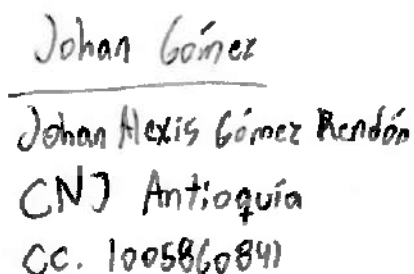 Johan Gómez
Johan Alexis Gómez Rendón
CNJ Antioquía
CC. 1005860841